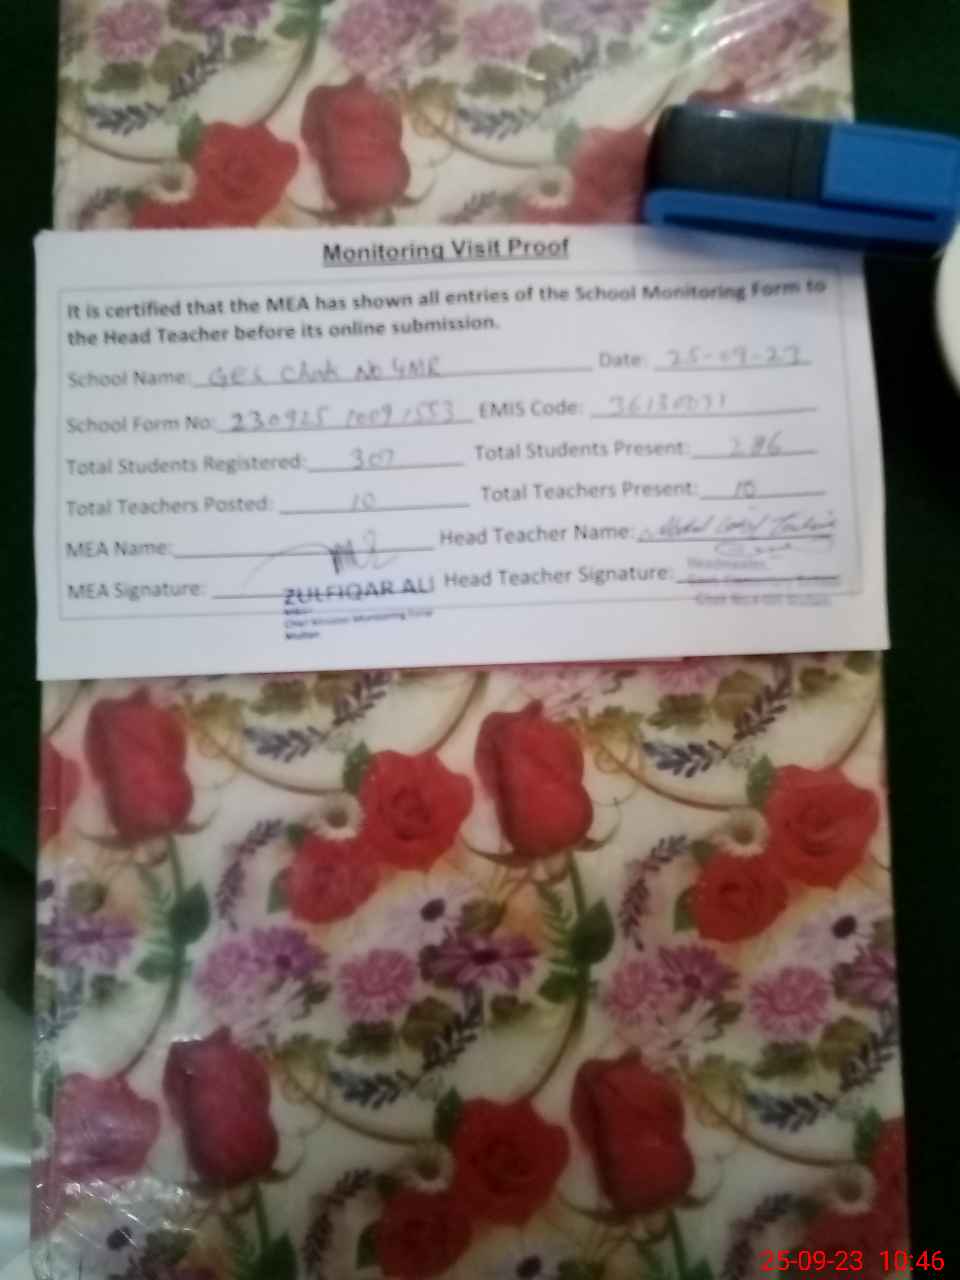 Monitoring Visit Proof
It is certified that the MEA has shown all entries of the School Monitoring Form to
the Head Teacher before its online submission.
School Name: GES Chak No 4MR Date: 25-09-23
School Form No: 230925 10091553 EMIS Code:
Total Students Registered: 307 Total Students Present: 286
Total Teachers Posted: 10 Total Teachers Present: 10
MEA Name: Head Teacher Name:
MEA Signature: ZULFIQAR ALI Head Teacher Signature:
Headmaster
Chief Minister Monitoring Force
Multan
25-09-23 10:46